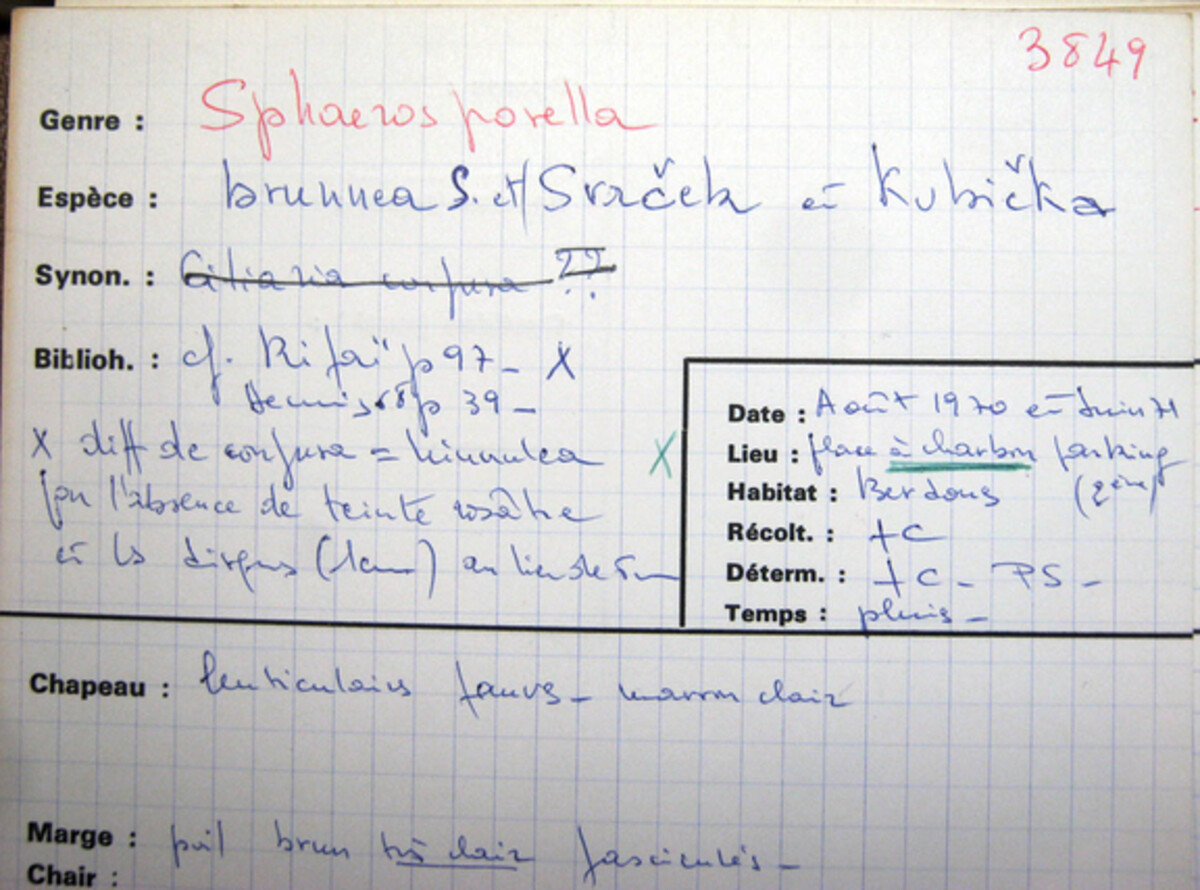 3849
Genre : Sphaerosporella
Espèce : brunnea S. et Svrček et Kubička
Synon. : Ciliaria confusa ??
Biblioh. : cf. Rifaï p 97 - X
Dennis 68 p 39 -
X diff de confusa = hinnulea X
par l'absence de teinte rosâtre
et les disques (1cm) au lieu de 5
Date : Août 1970 et Juin 71
Lieu : place à charbon parking
Habitat : Berdoues (2ème)
Récolt. : + C
Déterm. : + C - PS -
Temps : pluie -
Chapeau : lenticulaires fauve - marron clair
Marge : poil brun très clair fasciculés -
Chair :